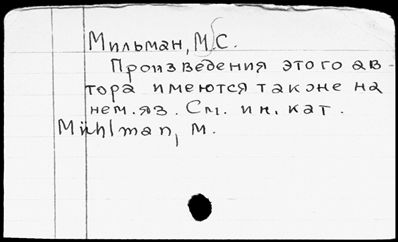 Мильман, М. С.
Произведения этого ав-
тора имеются также на
нем. яз. См. ин. кат.
Mühlman, M.